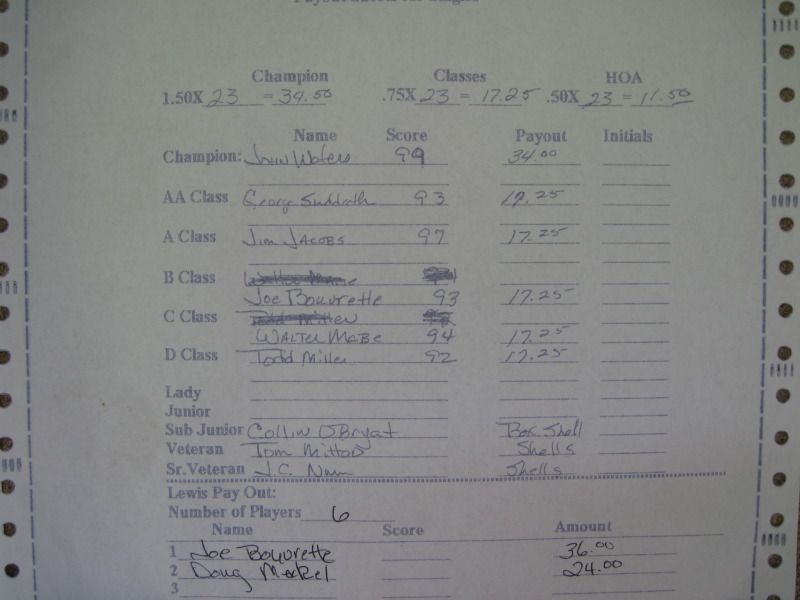 Champion Classes HOA
1.50X 23 = 34.50 .75X 23 = 17.25 .50X 23 = 11.50
Name Score Payout Initials
Champion: John Waters 99 34.00
AA Class George Suddrath 93 17.25
A Class Jim Jacobs 97 17.25
B Class
Joe Bouvrette 93 17.25
C Class
Walter Mabe 94 17.25
D Class Todd Miller 92 17.25
Lady
Junior
Sub Junior Collin O'Bryat Box Shell
Veteran Tom Shells
Sr. Veteran J.C. Shells
Lewis Pay Out:
Number of Players 6
Name Score Amount
1 Joe Bouvrette 36.00
2 Doug 24.00
3